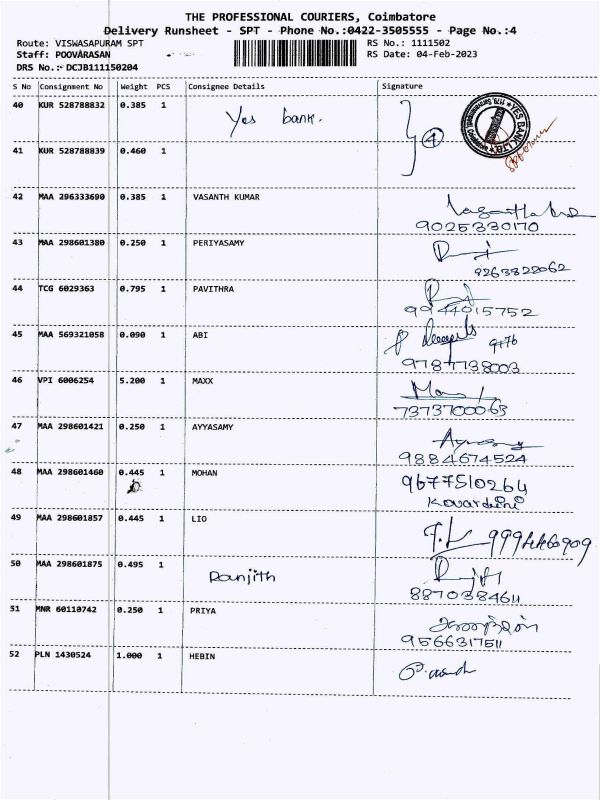 THE PROFESSIONAL COURIERS, Coimbatore
Delivery Runsheet - SPT - Phone No.:0422-3505555 - Page No.:4
Route: VISWASAPURAM SPT
RS No.: 1111502
Staff: POOVARASAN
RS Date: 04-Feb-2023
DRS No.:- DCJB111150204
S No Consignment No Weight PCS Consignee Details Signature
40 KUR 528788832 0.385 1 Yes bank. 4
YES BANK LTD
41 KUR 528788839 0.460 1
42 MAA 296333690 0.385 1 VASANTH KUMAR
9025330170
43 MAA 298601380 0.250 1 PERIYASAMY
9263822062
44 TCG 6029363 0.795 1 PAVITHRA
9944015752
45 MAA 569321058 0.090 1 ABI
9787738003
46 VPI 6006254 5.200 1 MAXX
7373700063
47 MAA 298601421 0.250 1 AYYASAMY
9884674524
48 MAA 298601460 0.445 1 MOHAN 9677510264
49 MAA 298601857 0.445 1 LIO
50 MAA 298601875 0.495 1 Ranjith
8870384611
51 MNR 60110742 0.250 1 PRIYA
9566317511
52 PLN 1430524 1.000 1 HEBIN